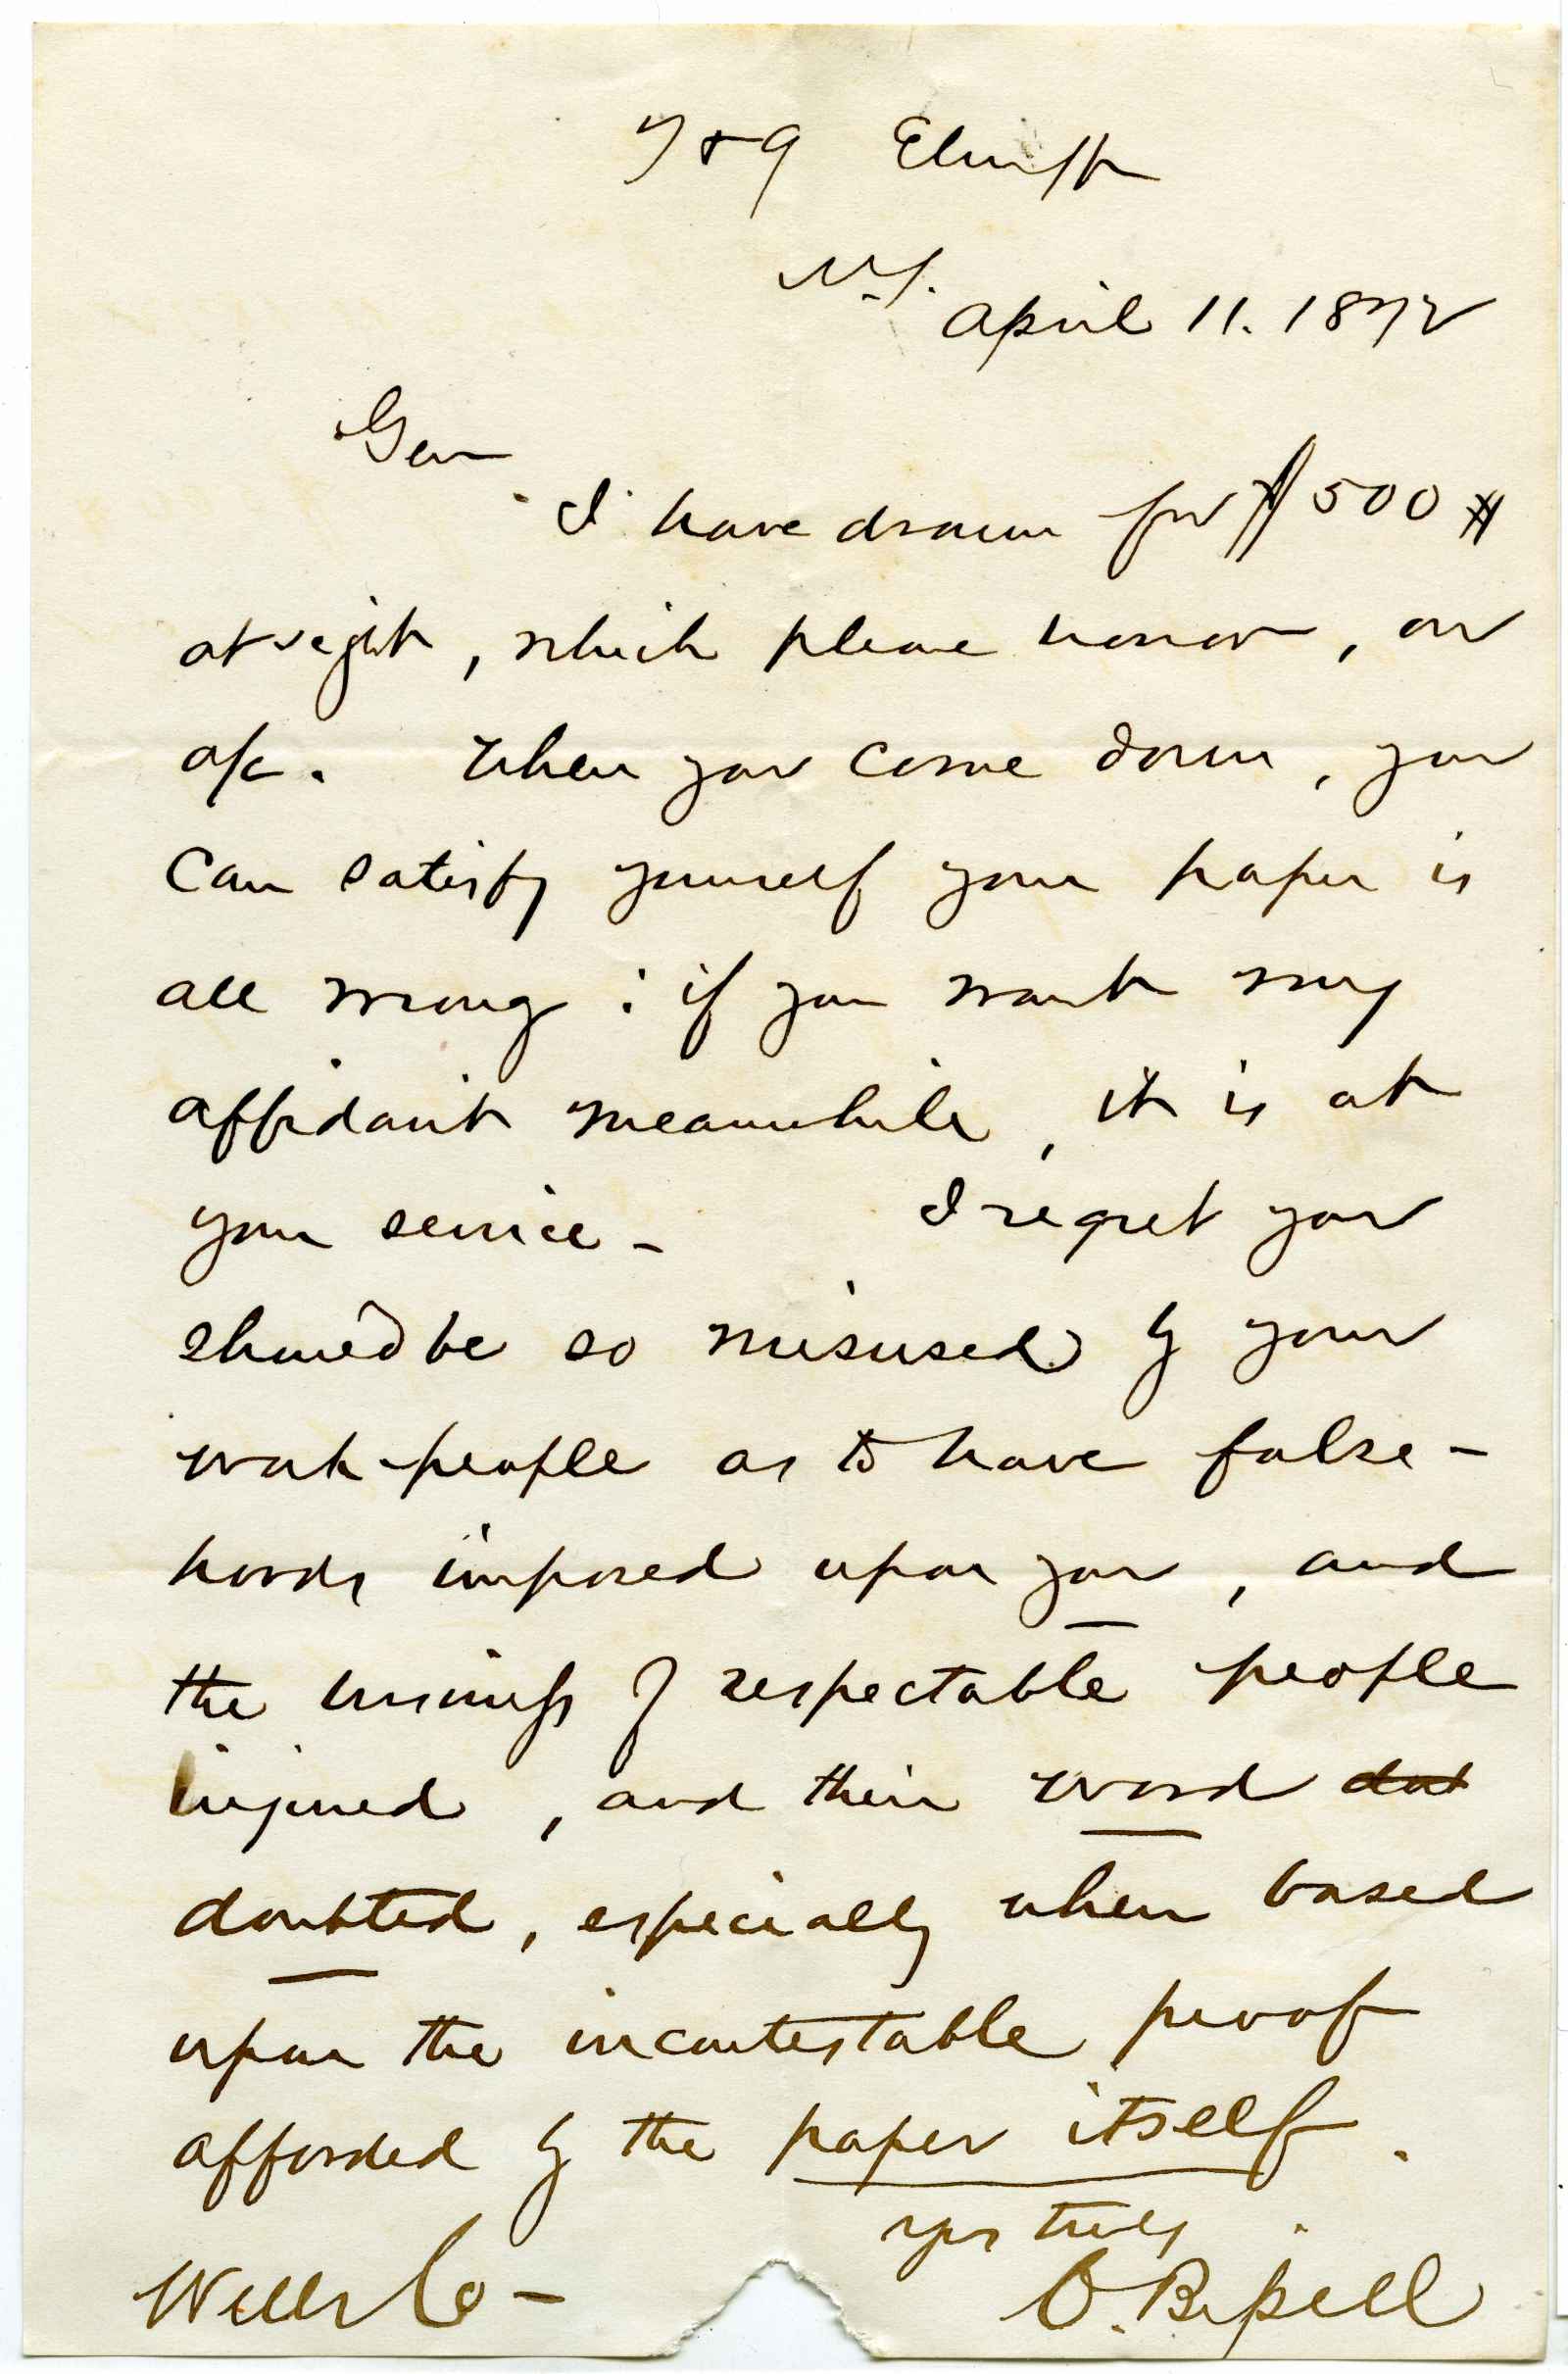 7 + 9 Elm St
N.Y.
April 11. 1872
Gen
I have drawn for $500
at sight, which please honor, on
a/c. When you come down, you
can satisfy yourself your paper is
all wrong : if you want my
affidavit meanwhile, it is at
your service – I regret you
should be so misused by your
work-people as to have false-
hoods imposed upon you, and
the business of respectable people
injured, and their word
doubted, especially when based
upon the incontestable proof
afforded by the paper itself.
yrs truly.
Wells Co – O. Bissell